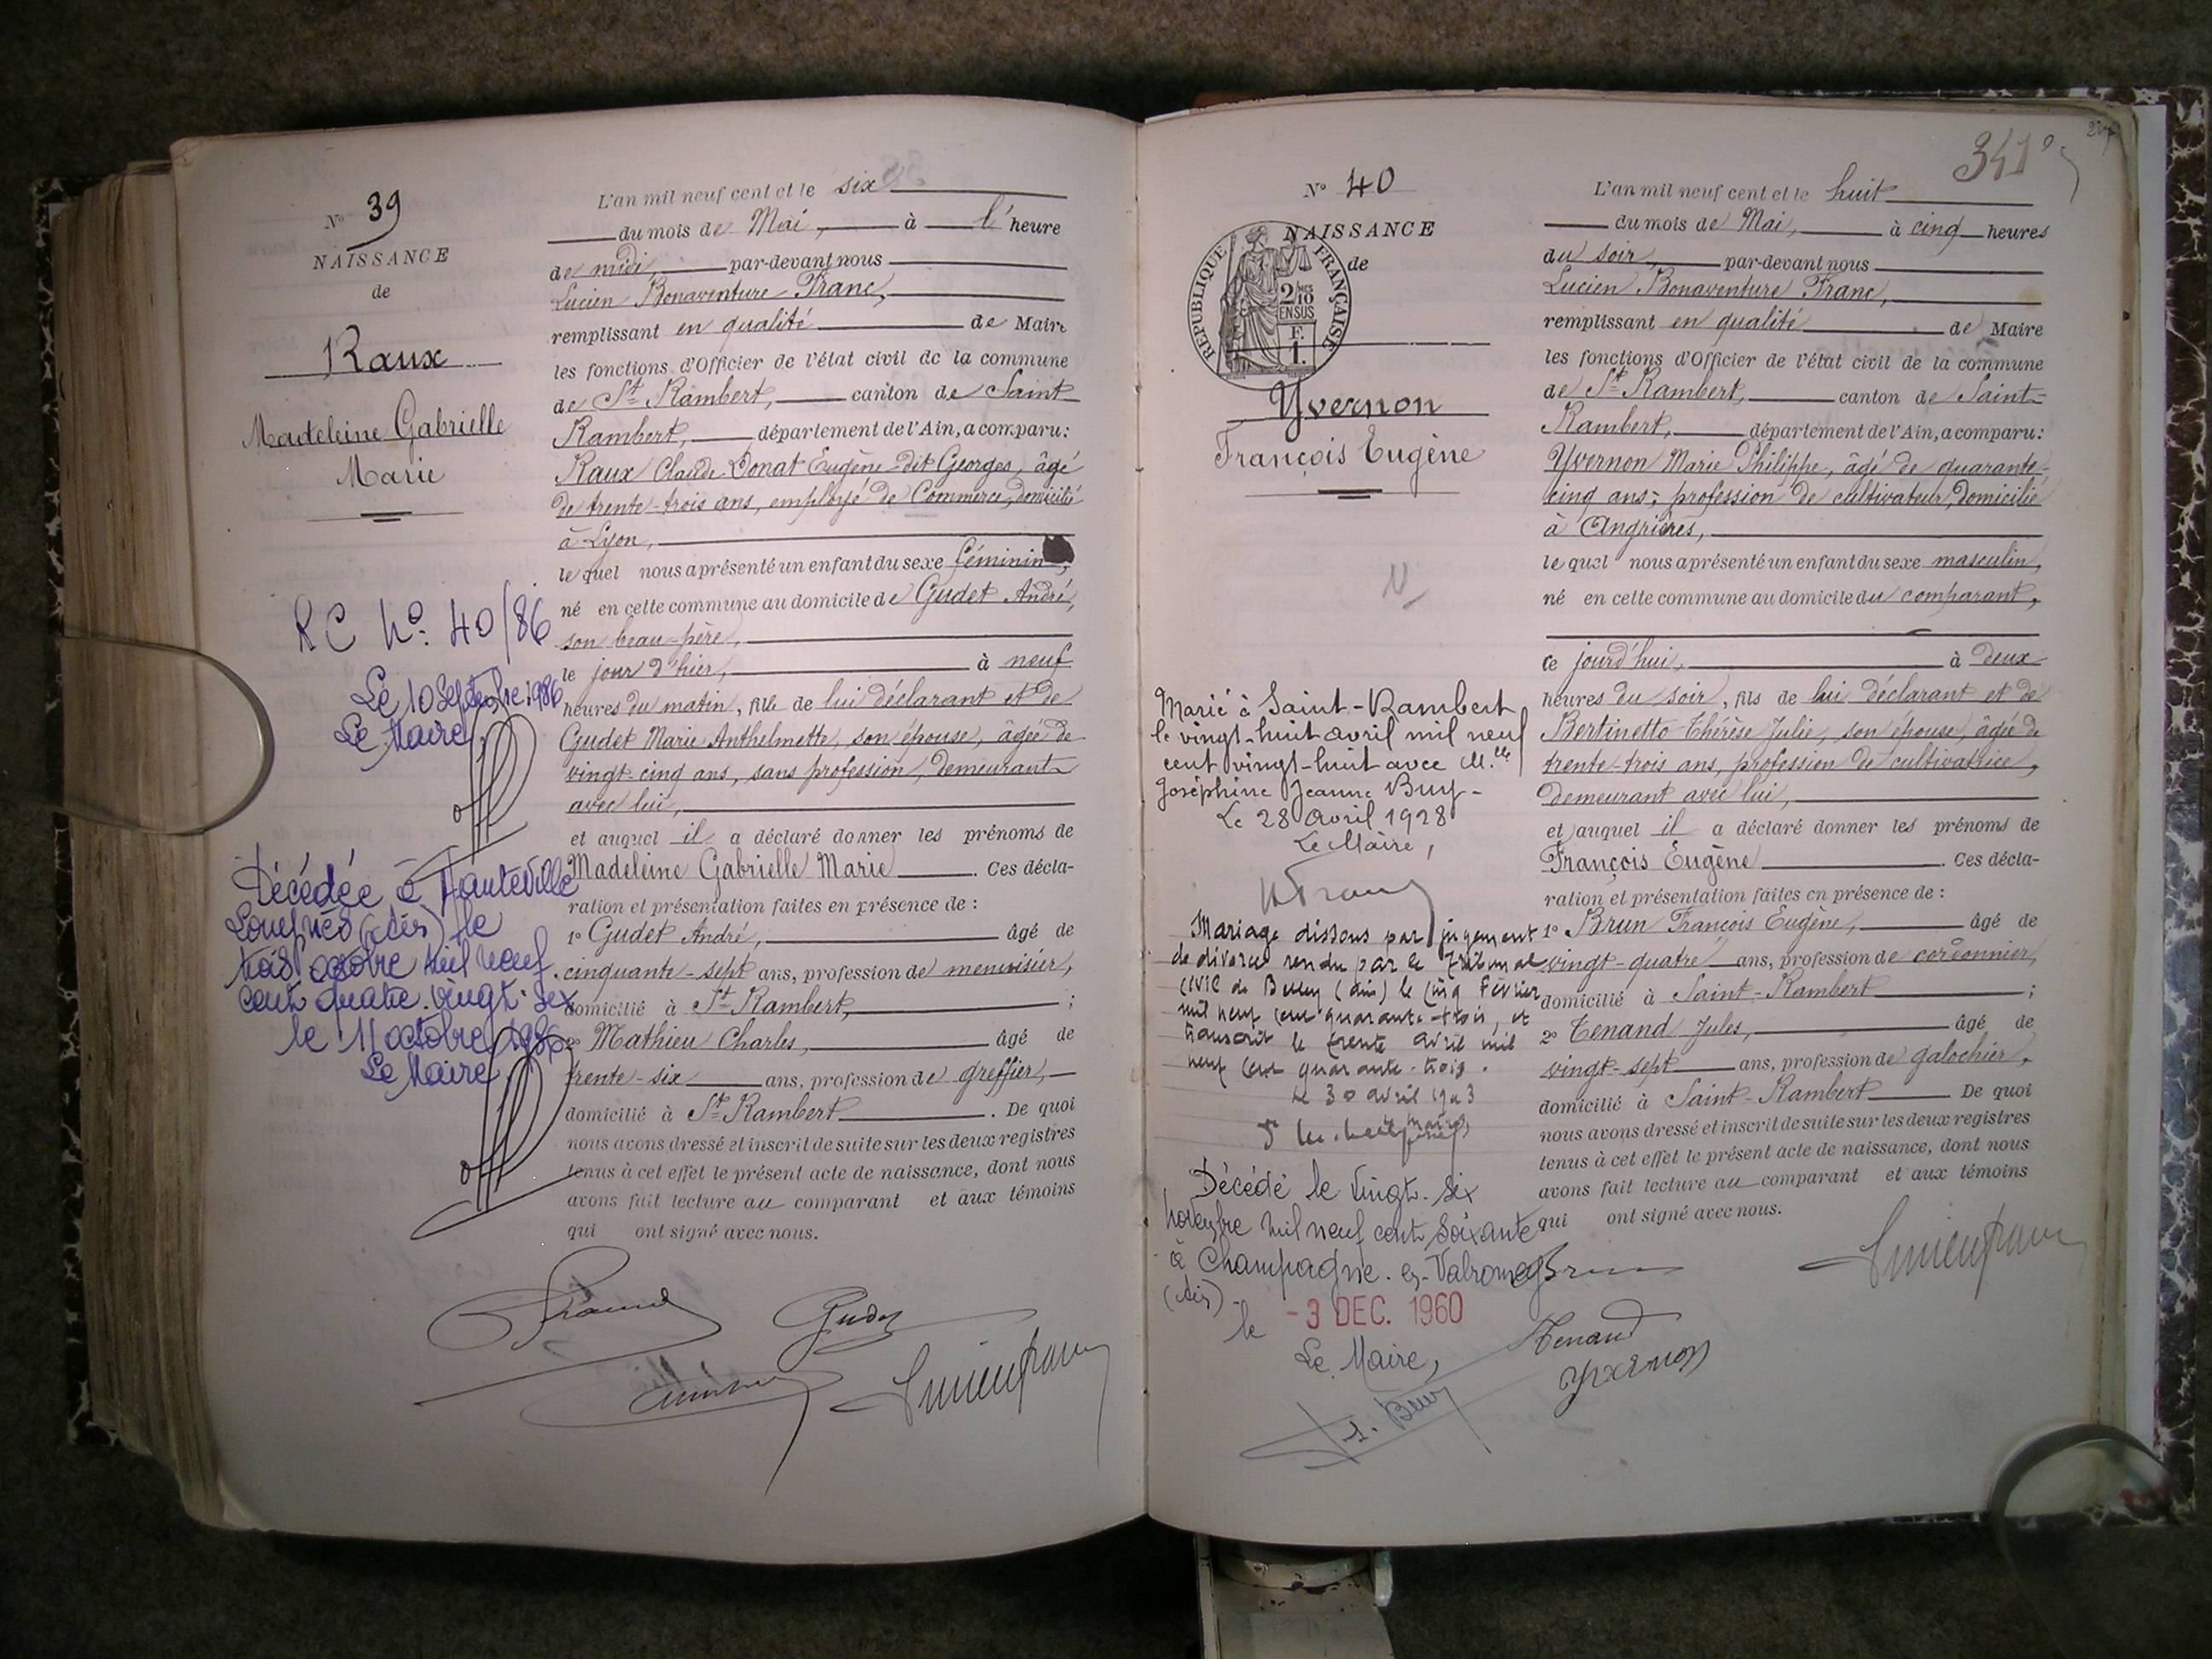 N° 39
NAISSANCE
de
Raux
Madeleine Gabrielle
Marie
RC N° 40/86
Le 10 Septembre 1986
Le Maire
Décédée à Hauteville
Lompnes (Ain) le
trois octobre mil neuf
cent quatre-vingt-six
le 11 octobre 1986
Le Maire
L'an mil neuf cent et le six
du mois de Mai, à l'heure
de midi, par-devant nous
Lucien Bonaventure Franc,
remplissant en qualité de Maire
les fonctions d'Officier de l'état civil de la commune
de St Rambert, canton de Saint
Rambert, département de l'Ain, a comparu:
Raux Claude Donat Eugène dit Georges, âgé
de trente-trois ans, employé de Commerce, domicilié
à Lyon,
le quel nous a présenté un enfant du sexe féminin,
né en cette commune au domicile de Gudet André,
son beau-père,
le jour d'hier, à neuf
heures du matin, fille de lui déclarant et de
Gudet Marie Anthelmette, son épouse, âgée de
vingt-cinq ans, sans profession, demeurant
avec lui,
et auquel il a déclaré donner les prénoms de
Madeleine Gabrielle Marie. Ces décla-
ration et présentation faites en présence de :
1° Gudet André, âgé de
cinquante-sept ans, profession de menuisier,
domicilié à St Rambert, ;
2° Mathieu Charles, âgé de
trente-six ans, profession de greffier,
domicilié à St Rambert. De quoi
nous avons dressé et inscrit de suite sur les deux registres
tenus à cet effet le présent acte de naissance, dont nous
avons fait lecture au comparant et aux témoins
qui ont signé avec nous.
Gudet
Lucien Franc
341
N° 40
NAISSANCE
de
REPUBLIQUE FRANÇAISE
2/10 MES
EN SUS
F.
1.
Yvernon
François Eugène
Marié à Saint-Rambert
le vingt-huit avril mil neuf
cent vingt-huit avec Melle
Joséphine Jeanne Buy-
Le 28 avril 1928
Le Maire,
Mariage dissous par jugement
de divorce rendu par le Tribunal
civil de Belley (Ain) le cinq Février
mil neuf cent quarante-trois, et
transcrit le trente avril mil
neuf cent quarante-trois.
Le 30 avril 1943
Décédé le vingt-six
novembre mil neuf cent soixante
à Champagne-en-Valromey
(Ain)-
le - 3 DEC. 1960
Le Maire,
L'an mil neuf cent et le huit
du mois de Mai, à cinq heures
du soir, par-devant nous
Lucien Bonaventure Franc,
remplissant en qualité de Maire
les fonctions d'Officier de l'état civil de la commune
de St Rambert, canton de Saint-
Rambert, département de l'Ain, a comparu:
Yvernon Marie Philippe, âgé de quarante-
cinq ans, profession de cultivateur, domicilié
à Angrières,
le quel nous a présenté un enfant du sexe masculin,
né en cette commune au domicile du comparant,
ce jourd'hui, à deux
heures du soir, fils de lui déclarant et de
Bertinetto Thérèse Julie, son épouse, âgée de
trente-trois ans, profession de cultivatrice,
demeurant avec lui,
et auquel il a déclaré donner les prénoms de
François Eugène. Ces décla-
ration et présentation faites en présence de :
1° Brun François Eugène, âgé de
vingt-quatre ans, profession de cordonnier,
domicilié à Saint-Rambert ;
2° Tenand Jules, âgé de
vingt-sept ans, profession de galochier,
domicilié à Saint-Rambert De quoi
nous avons dressé et inscrit de suite sur les deux registres
tenus à cet effet le présent acte de naissance, dont nous
avons fait lecture au comparant et aux témoins
qui ont signé avec nous.
Brun
Lucien Franc
Tenand
Yvernon